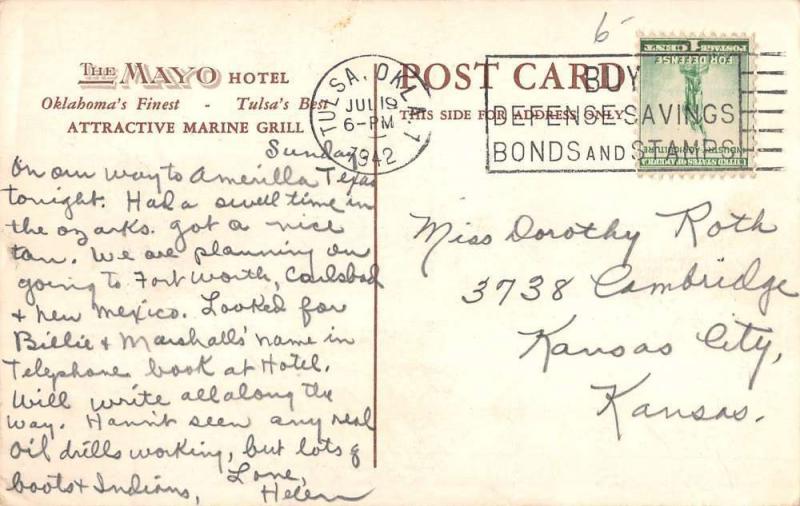 THE MAYO HOTEL
Oklahoma's Finest - Tulsa's Best
ATTRACTIVE MARINE GRILL
Sunday
On our way to Amerilla Texas
tonight. Had a swell time in
the ozarks. got a nice
tan. We are planning on
going to Fort Worth, Carlsbad
& New Mexico. Looked for
Billie & Marshalls' name in
Telephone book at Hotel.
Will write all along the
way. Havn't seen any real
Oil drills working, but lots of
boots & Indians,
Love,
Helen
TULSA, OKLA. 7
JUL 19
6-PM
1942
POST CARD
THIS SIDE FOR ADDRESS ONLY
6
BUY
DEFENSE SAVINGS
BONDS AND STAMPS
UNITED STATES OF AMERICA
INDUSTRY AGRICULTURE
FOR DEFENSE
1 CENT
POSTAGE
Miss Dorothy Roth
3738 Cambridge
Kansas City,
Kansas.